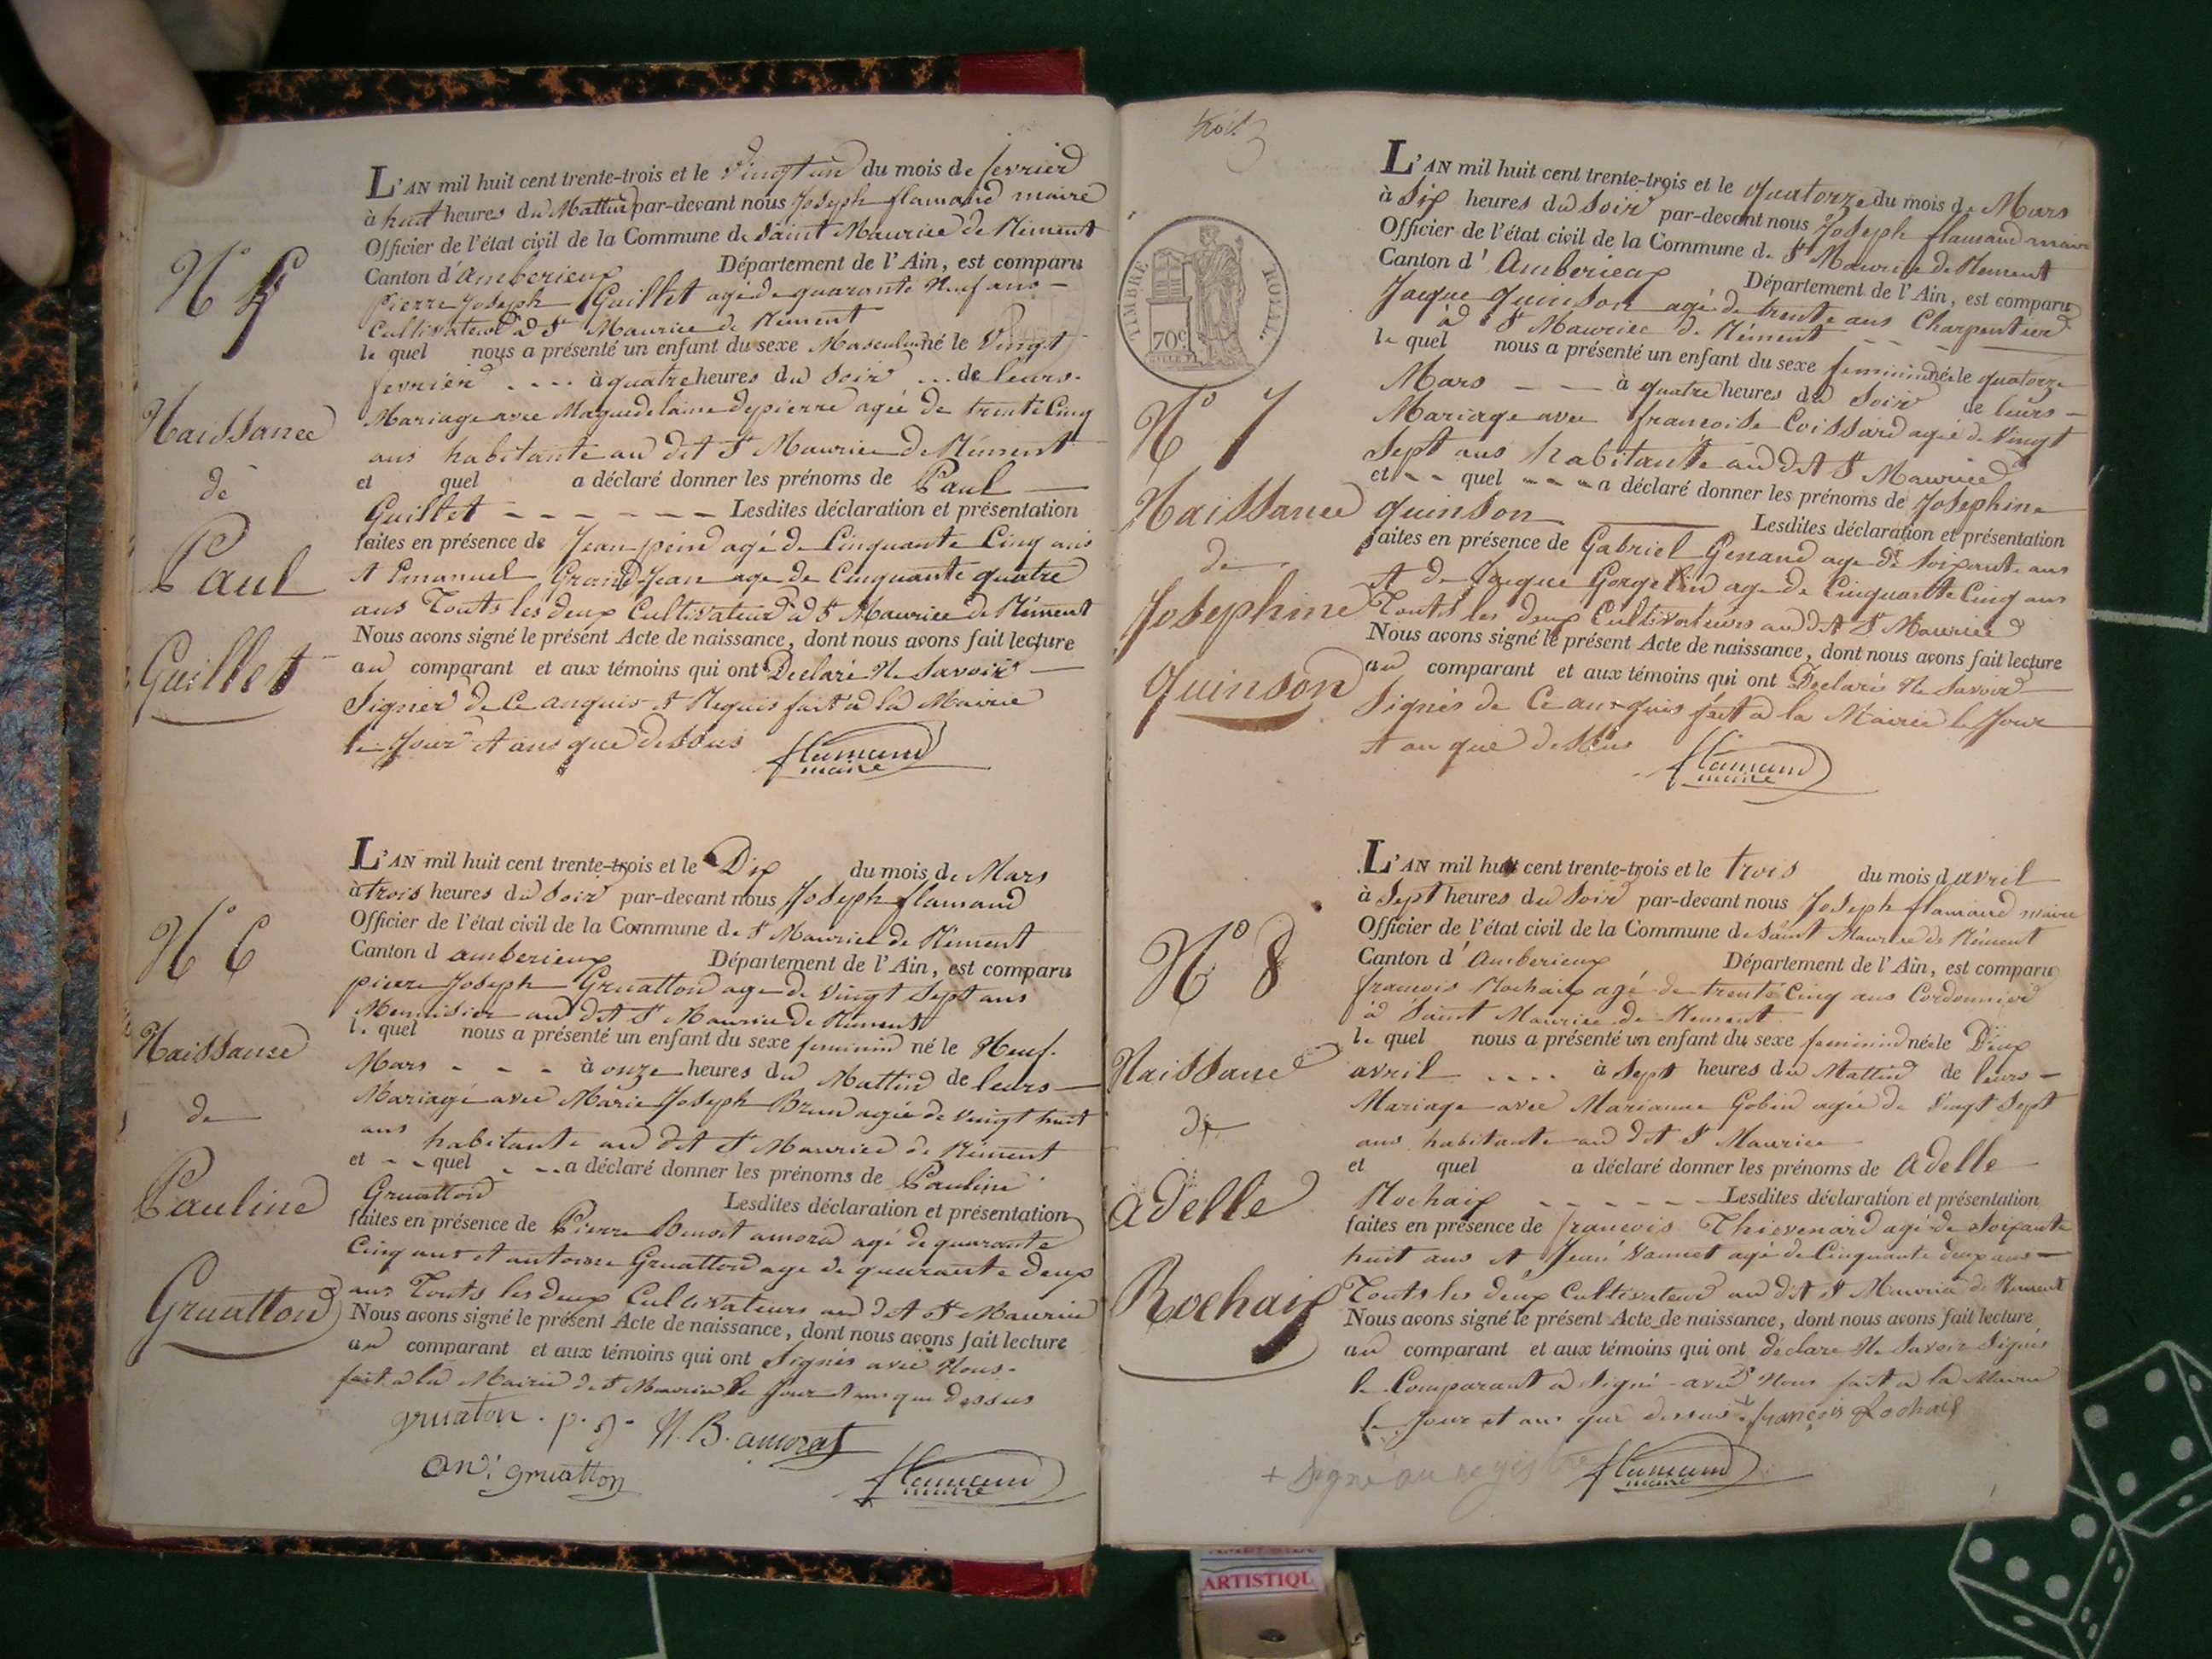 N° 5
Naissance
de
Paul
Guillet
L'AN mil huit cent trente-trois et le Vingt un du mois de fevrier
à huit heures du Mattin par-devant nous Joseph flamand maire
Officier de l'état civil de la Commune de Saint Maurice de Rément
Canton d'Amberieux Département de l'Ain, est comparu
Pierre Joseph Guillet agé de quarante Neuf ans
Cultivateur à St Maurice de Rément
le quel nous a présenté un enfant du sexe Masculin né le Vingt
fevrier .... à quatre heures du Soir ... de leurs
Mariage avec Maguedelaine depierre agée de trente Cinq
ans habitante au dit St Maurice de Rément
et quel a déclaré donner les prénoms de Paul
Guillet - - - - - - Lesdites déclaration et présentation
faites en présence de Jean agé de Cinquante Cinq ans
et Emanuel Grand Jean age de Cinquante quatre
ans Touts les deux Cultivateur à St Maurice de Rément
Nous avons signé le présent Acte de naissance, dont nous avons fait lecture
au comparant et aux témoins qui ont Declaré Ne Savoir
Signer de Ce anquis et Requis fait à la Mairie
le Jour et ans que dessus flamand
maire
N° 6
Naissance
de
Pauline
Gruatton
L'AN mil huit cent trente-trois et le Dix du mois de Mars
à trois heures du Soir par-devant nous Joseph flamand
Officier de l'état civil de la Commune de St Maurice de Rément
Canton d amberieux Département de l'Ain, est comparu
pierre Joseph Gruatton age de Vingt Sept ans
Menuisier au dit St Maurice de Rément
le quel nous a présenté un enfant du sexe feminin né le Neuf
Mars - - - à onze heures du Mattin de leurs
Mariage avec Marie Joseph Brun agée de Vingt huit
ans habitante au dit St Maurice de Rément
et - - quel - - - a déclaré donner les prénoms de Pauline
Gruatton Lesdites déclaration et présentation
faites en présence de Pierre Benoit amora agé de quarante
Cinq ans et antoine Gruatton age de quarante deux
ans Touts les deux Cultivateurs au dit St Maurice
Nous avons signé le présent Acte de naissance, dont nous avons fait lecture
au comparant et aux témoins qui ont Signés avec Nous
fait à la Mairie de St Maurice le Jour et ans que dessus
gruaton . p. j. B. amorat
an: gruatton flamand
maire
TIMBRE ROYAL
70c
N° 7
Naissance
de
Josephine
Quinson
L'AN mil huit cent trente-trois et le Quatorze du mois de Mars
à Six heures du Soir par-devant nous Joseph flamand maire
Officier de l'état civil de la Commune de St Maurice de Rément
Canton d'Amberieux Département de l'Ain, est comparu
Jacque Quinson agé de trente ans Charpentier
à St Maurice de Rément
le quel nous a présenté un enfant du sexe feminin née le quatorze
Mars - - à quatre heures du Soir de leurs
Mariage avec francoise Coissard agée de Vingt
Sept ans habitante au dit St Maurice
et - - quel - - - a déclaré donner les prénoms de Josephine
Quinson Lesdites déclaration et présentation
faites en présence de Gabriel Genaud age de Soixante ans
et de Jacque Gorgelin age de Cinquante Cinq ans
Touts les deux Cultivateurs au dit St Maurice
Nous avons signé le présent Acte de naissance, dont nous avons fait lecture
au comparant et aux témoins qui ont Declarés Ne Savoir
Signés de Ce anrquis fait à la Mairie le Jour
et an que dessus flamand
maire
N° 8
Naissance
de
adelle
Rochaix
L'AN mil huit cent trente-trois et le trois du mois d avril
à Sept heures du Soir par-devant nous Joseph flamand maire
Officier de l'état civil de la Commune de Saint Maurice de Rément
Canton d'Amberieux Département de l'Ain, est comparu
francois Rochaix agé de trente Cinq ans Cordonnier
à Saint Maurice de Rement
le quel nous a présenté un enfant du sexe feminin née le Deux
avril .... à Sept heures du Mattin de leurs
Mariage avec Marianne Gobin agée de Vingt Sept
ans habitante au dit St Maurice
et quel a déclaré donner les prénoms de adelle
Rochaix - - - - - Lesdites déclaration et présentation
faites en présence de francois Thievenard agé de Soixante
huit ans et Jean Vannet agé de Cinquante deux ans
Touts les deux Cultivateur au dit St Maurice de Rement
Nous avons signé le présent Acte de naissance, dont nous avons fait lecture
au comparant et aux témoins qui ont déclare Ne Savoir Signés
le Comparant à Signé avec Nous fait à la Mairie
le Jour et ans que dessus + françois Rochaix
+ signé au registre flamand
maire
ARTISTIQU